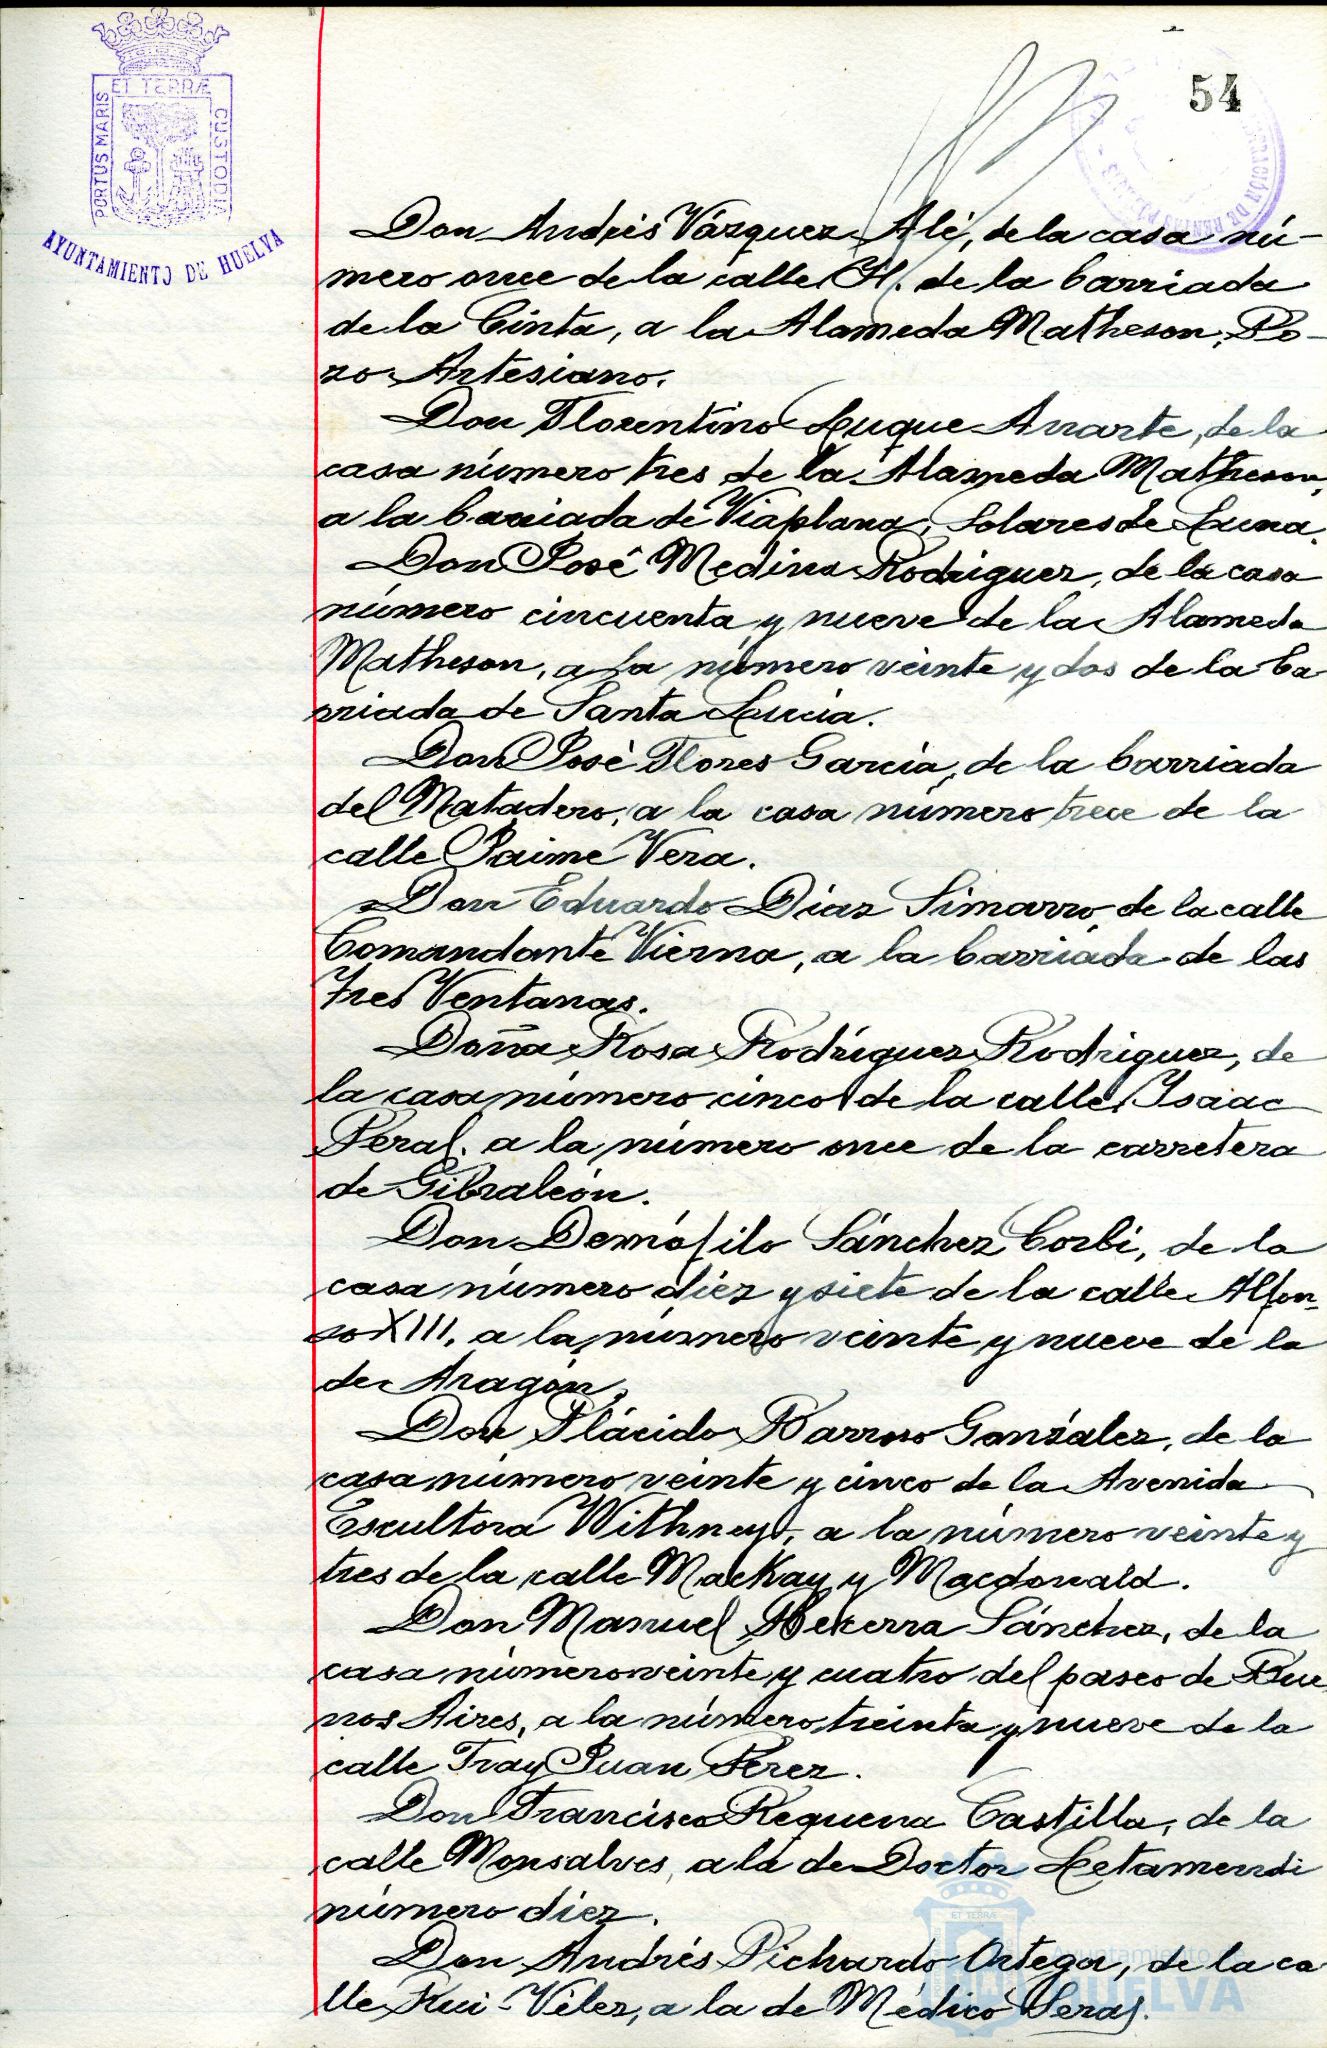 54
ET TERRÆ
PORTUS MARIS
CUSTODIA
AYUNTAMIENTO DE HUELVA
Don Andrés Vázquez Alé, de la casa nú-
mero once de la calle H. de la barriada
de la Cinta, a la Alameda Matheson, Po-
zo Artesiano.
Don Florentino Luque Arrarte, de la
casa número tres de la Alameda Matheson,
a la barriada de Viaplana, Solares de Luna.
Don José Medina Rodriguez, de la casa
número cincuenta y nueve de la Alameda
Matheson, a la número veinte y dos de la ba
rriada de Santa Lucia.
Don José Flores García, de la barriada
del Matadero, a la casa número trece de la
calle Jaime Vera.
Don Eduardo Diaz Simarro, de la calle
Comandante Vierna, a la barriada de las
Tres Ventanas.
Doña Rosa Rodríguez Rodriguez, de
la casa número cinco de la calle Isaac
Peral, a la número once de la carretera
de Gibraleón.
Don Demófilo Sánchez Corbi, de la
casa número diez y siete de la calle Alfon-
so XIII, a la número veinte y nueve de la
de Aragón.
Don Plácido Barroso González, de la
casa número veinte y cinco de la Avenida
Escultora Withney, a la número veinte y
tres de la calle Mackay y Macdonald.
Don Manuel Bekerra Sánchez, de la
casa número veinte y cuatro del paseo de Bue
nos Aires, a la número treinta y nueve de la
calle Fray Juan Pérez.
Don Francisco Requena Castilla, de la
calle Monsalves, a la de Doctor Letamendi
número diez.
Don Andrés Pichardo Ortega, de la ca
lle Rui-Vélez, a la de Médico Seras.
ET TERRÆ
Ayuntamiento de
HUELVA